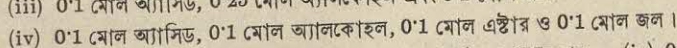 (iii) 0·1 মোল অ্যাসিড, 0·25 মোল
(iv) 0·1 মোল অ্যাসিড, 0·1 মোল অ্যালকোহল, 0·1 মোল এষ্টার ও 0·1 মোল জল।